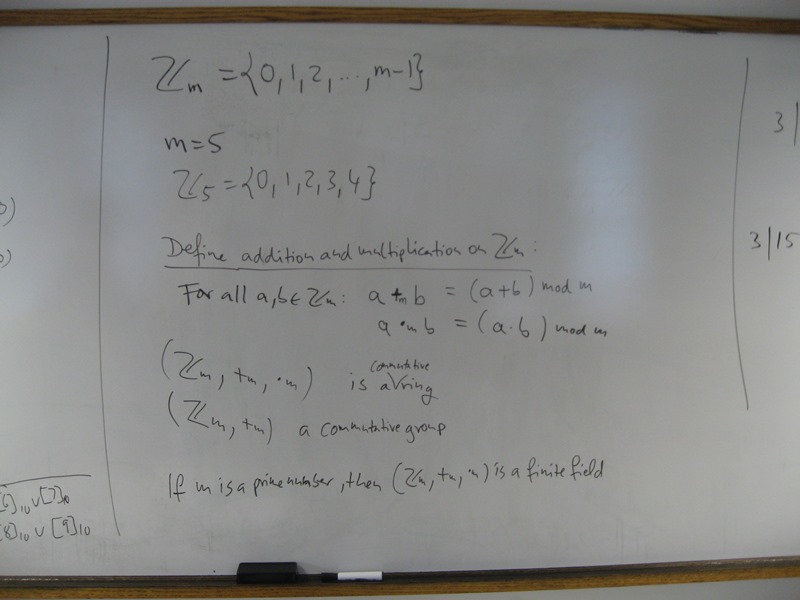 ℤₘ = {0, 1, 2, ..., m-1}
m=5
ℤ₅ = {0, 1, 2, 3, 4}
Define addition and multiplication on ℤₘ:
For all a, b ∈ ℤₘ: a +ₘ b = (a+b) mod m
a ·ₘ b = (a·b) mod m
(ℤₘ, +ₘ, ·ₘ) is a commutative ring
(ℤₘ, +ₘ) a commutative group
If m is a prime number, then (ℤₘ, +ₘ, ·ₘ) is a finite field
0)
[6]₁₀ ∪ [7]₁₀
[8]₁₀ ∪ [9]₁₀
3 |
3 | 15